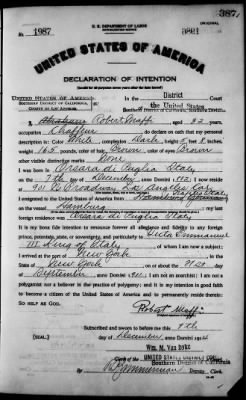 387
ORIGINAL
U. S. DEPARTMENT OF LABOR
No. 1987
UNITED STATES OF AMERICA
DECLARATION OF INTENTION
UNITED STATES OF AMERICA
District
SOUTHERN DISTRICT OF CALIFORNIA
COUNTY OF LOS ANGELES
the United States
Robert Maffi, aged 32 years,
occupation Chauffeur, do declare on oath that my personal
description is: Color White, complexion Dark, height 5 feet 8 inches,
weight 165 pounds, color of hair Brown, color of eyes Brown
other visible distinctive marks None
I was born in Orsara di Puglia Italy
on the 7th day of, anno Domini; I now reside
at Broadway Los Angeles Cal.
I emigrated to the United States of America from Hamburg Germany
on the vessel Hamburg; my last
foreign residence was Orsara di Puglia Italy
It is my bona fide intention to renounce forever all allegiance and fidelity to any foreign
prince, potentate, state, or sovereignty, and particularly to Victor Emmanuel
III King of Italy, of whom I am now a subject;
I arrived at the port of New York, in the
State of New York, on or about the day
of September, anno Domini; I am not an anarchist; I am not a
polygamist nor a believer in the practice of polygamy; and it is my intention in good faith
to become a citizen of the United States of America and to permanently reside therein:
SO HELP ME GOD.
Robert Maffi
Subscribed and sworn to before me this 9th
[SEAL] day of December, anno Domini
Wm. M. Van Dyke
Clerk of the UNITED STATES DISTRICT COURT
Southern District of California
By Zimmerman, Deputy Clerk.